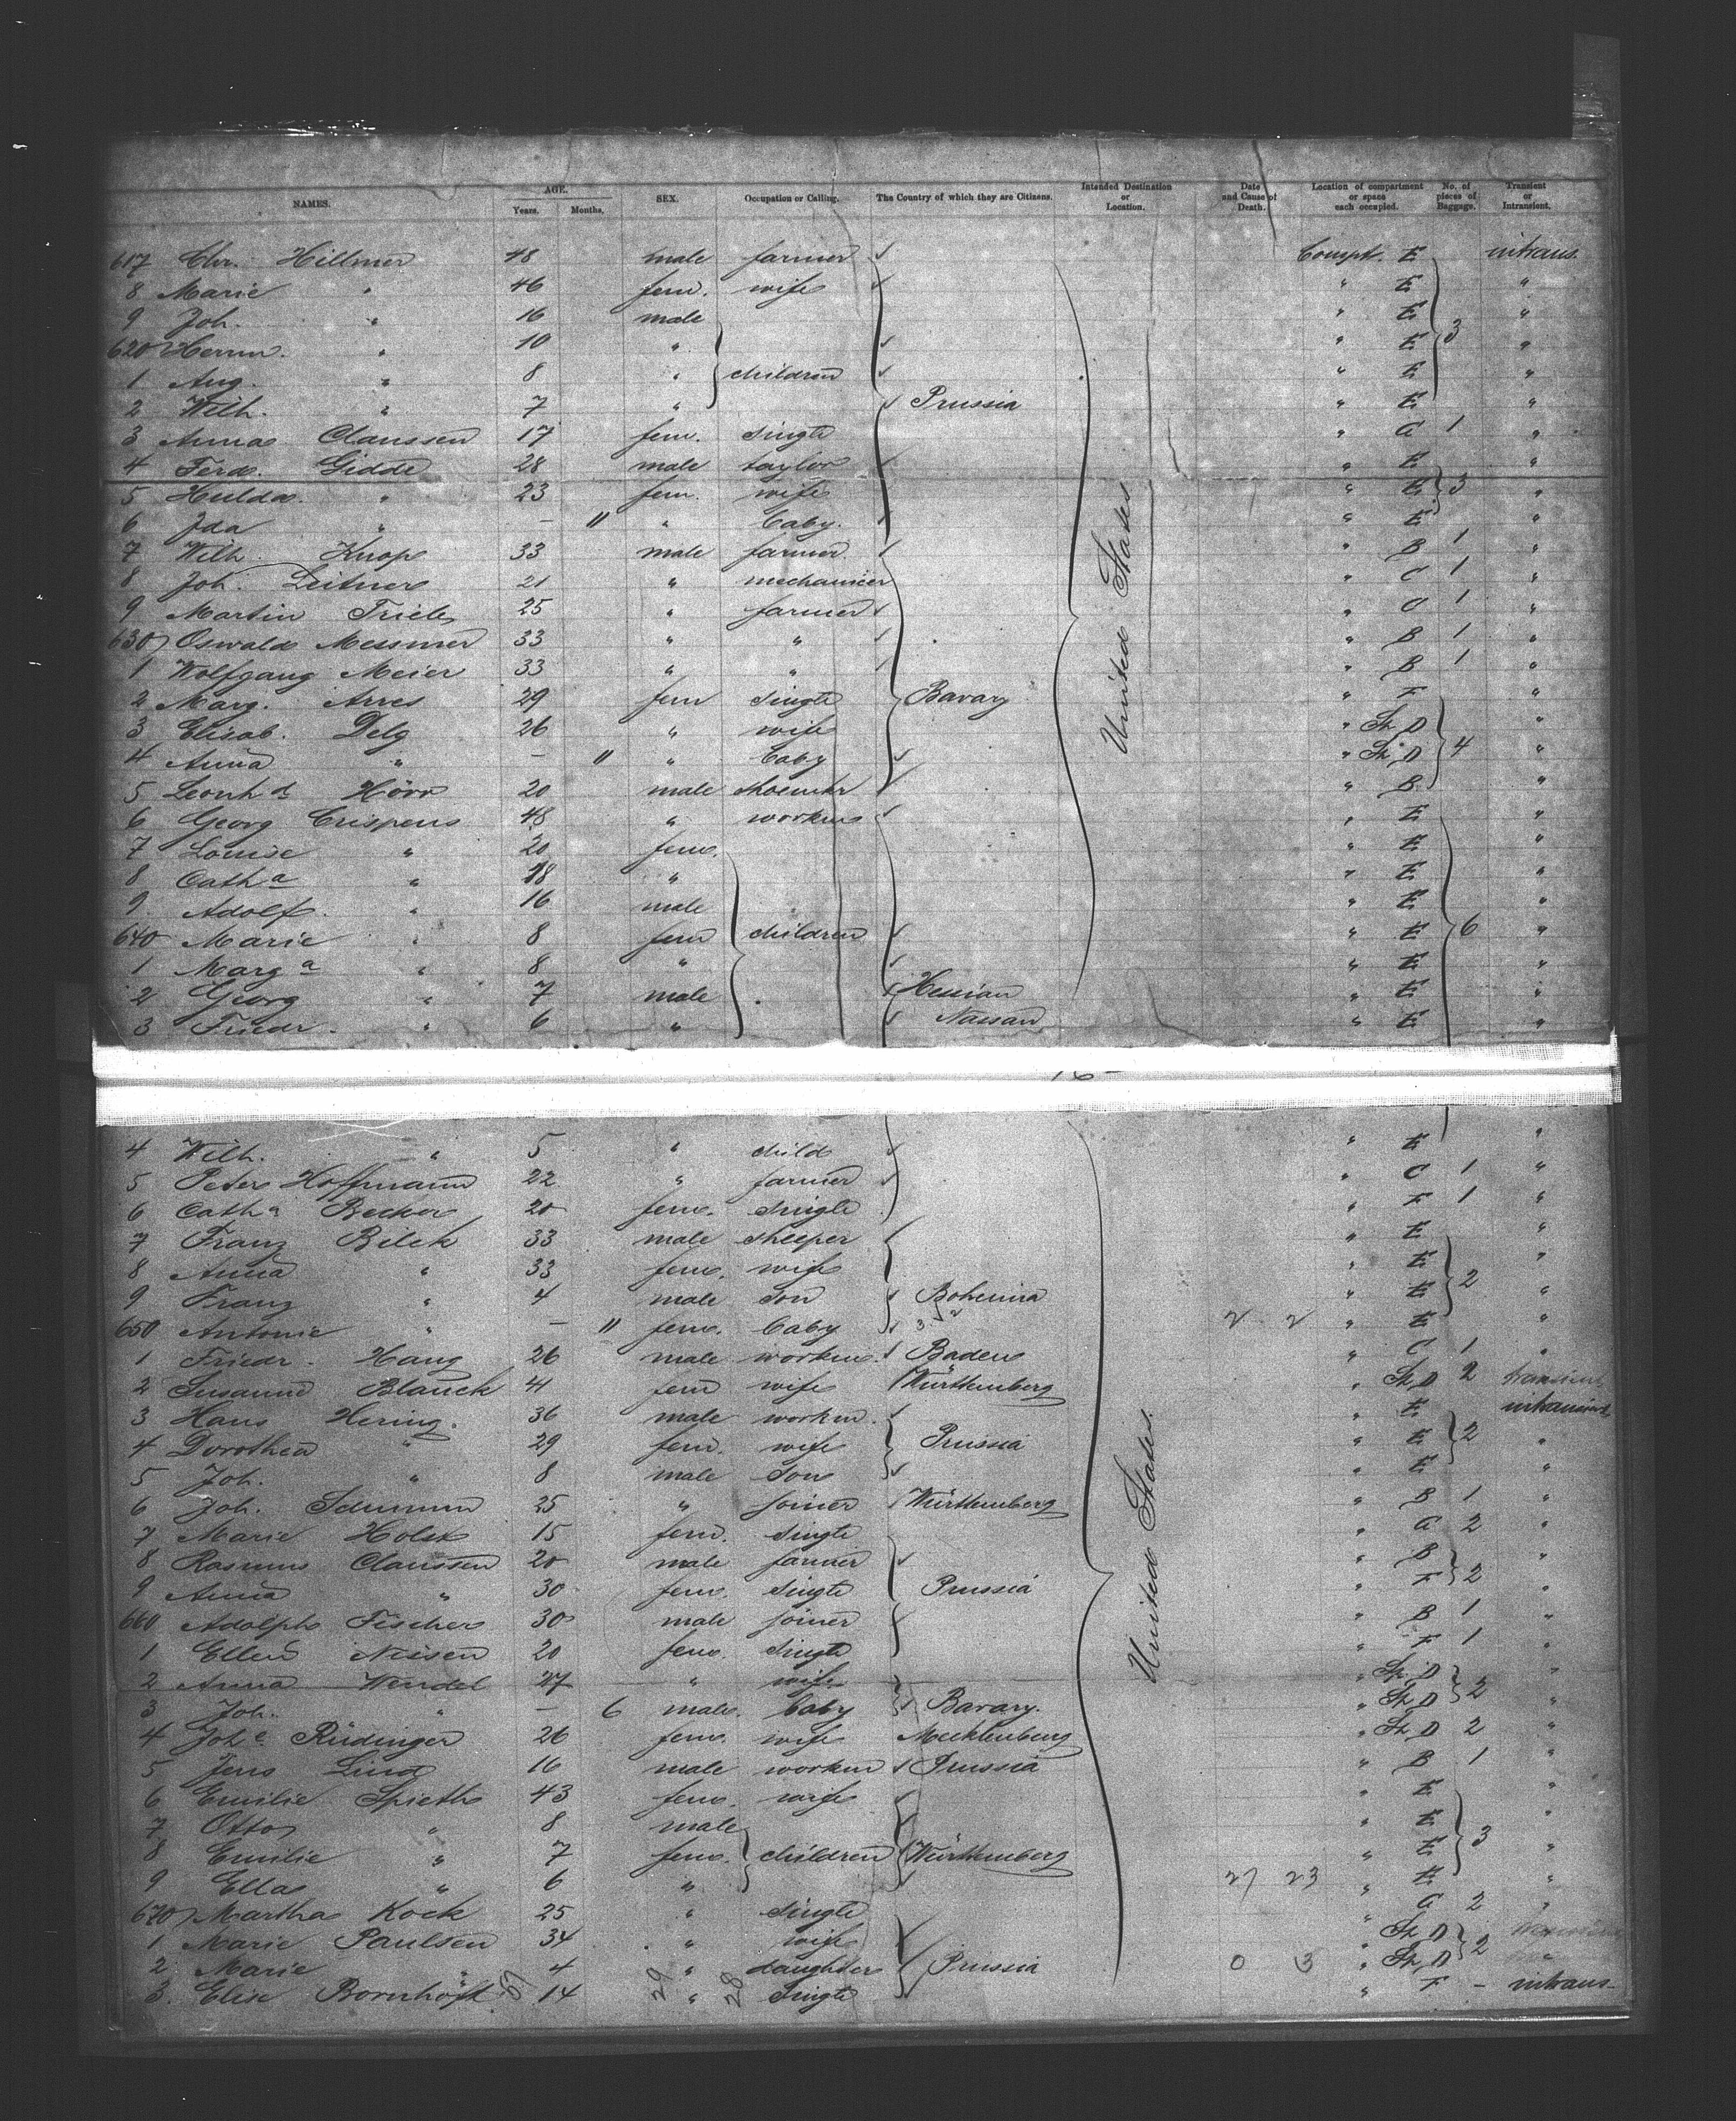 NAMES. AGE. Years. Months. SEX. Occupation or Calling. The Country of which they are Citizens. Intended Destination or Location. Date and Cause of Death. Location of compartment or space each occupied. No. of pieces of Baggage. Transient or Intransient.
617 Chr. Hillmer 48 male farmer Compt. E intrans.
8 Marie " 46 fem. wife " E "
9 Joh. " 16 male " E "
620 Herm. " 10 " " E 3 "
1 Aug. " 8 " children " E "
2 Wilh. " 7 " Prussia " E "
3 Anna Claussen 17 fem. single " C 1 "
4 Ferd. Gidde 28 male taylor " E "
5 Hulda " 23 fem. wife " E 3 "
6 Ida " – 11 " baby. " E "
7 Wilh. Knop 33 male farmer " B 1 "
8 Joh. Leitner 21 " mechanicer " C 1 "
9 Martin Trieb 25 " farmer " C 1 "
630 Oswald Messmer 33 " " " B 1 "
1 Wolfgang Meier 33 " " " B 1 "
2 Marg. Arres 29 fem single Bavary " F "
3 Elisab. Delg 26 " wife " St. D "
4 Anna " – 11 " baby " St. D 4 "
5 Leonhd Hörr 20 male shoemkr " B "
6 Georg Crispens 48 " worker " E "
7 Louise " 20 fem. " E "
8 Catha " 18 " " E "
9 Adolf. " 16 male " E "
640 Marie " 8 fem children " E 6 "
1 Marga " 8 " " E "
2 Georg " 7 male Hessian " E "
3 Friedr. " 6 " Nassau " E "
United States
4 Wilh. " 5 " child " E "
5 Peter Hoffmann 22 " farmer " C 1 "
6 Catha Becker 20 fem. single " F 1 "
7 Franz Bilek 33 male " E "
8 Anna " 33 fem. wife " E "
9 Franz " 4 male son Bohemia " E 2 "
650 Antonie " – 11 fem. baby 2 2 " E "
1 Friedr. Haug 26 male worker Baden " C 1 "
2 Susanne Blanck 41 fem wife Württemberg " St. D 2 transient
3 Hans Hering. 36 male worker " E intransient
4 Dorothea " 29 fem. wife Prussia " E 2 "
5 Joh. " 8 male son " E "
6 Joh. 25 " joiner Württemberg " B 1 "
7 Marie Holst 15 fem. single " C 2 "
8 Rasmus Claussen 20 male farmer " B "
9 Anna " 30 fem. single Prussia " F 2 "
660 Adolph Fischer 30 male joiner " B 1 "
1 Ellen Nissen 20 fem. single " F 1 "
2 Anna Wendel 27 " wife " St. D "
3 Joh. " – 6 male. baby Bavary. " St. D 2 "
4 Johe Rüdinger 26 fem. wife Mecklenburg " St. D 2 "
5 Jens Lind 16 male worker Prussia " B 1 "
6 Emilie Spieth 43 fem. wife " E "
7 Otto " 8 male " E "
8 Emilie " 7 fem. children Württemberg " E 3 "
9 Ella " 6 " 27 23 " E "
670 Martha Kock 25 " single " C 2 "
1 Marie Paulsen 34 " wife " St. D
2 Marie " 4 " daughter Prussia 0 3 " St. D 2
3. Elise Bornhöft 14 29 " 28 single " F – intrans.
United States.